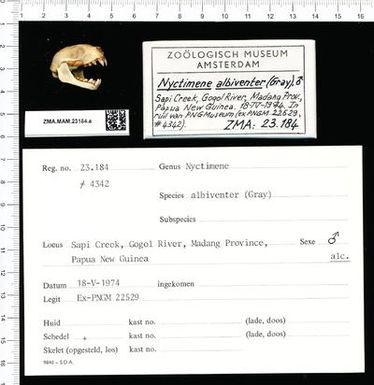 ZOÖLOGISCH MUSEUM
AMSTERDAM
Nyctimene albiventer (Gray), ♂
Sapi Creek, Gogol River, Madang Prov.,
Papua New Guinea. 18-IV-1974. In
ruil van PNG Museum (ex PNGM 22529,
#4342).
ZMA: 23.184
ZMA.MAM.23184.a
Reg. no. 23.184
≠ 4342
Genus Nyctimene
Species albiventer (Gray)
Subspecies
Locus Sapi Creek, Gogol River, Madang Province, Sexe ♂
Papua New Guinea alc.
Datum 18-V-1974 ingekomen
Legit Ex-PNGM 22529
Huid kast no. (lade, doos)
Schedel + kast no. (lade, doos)
Skelet (opgesteld, los) kast no. (lade, doos)
9840 - S.O.A.